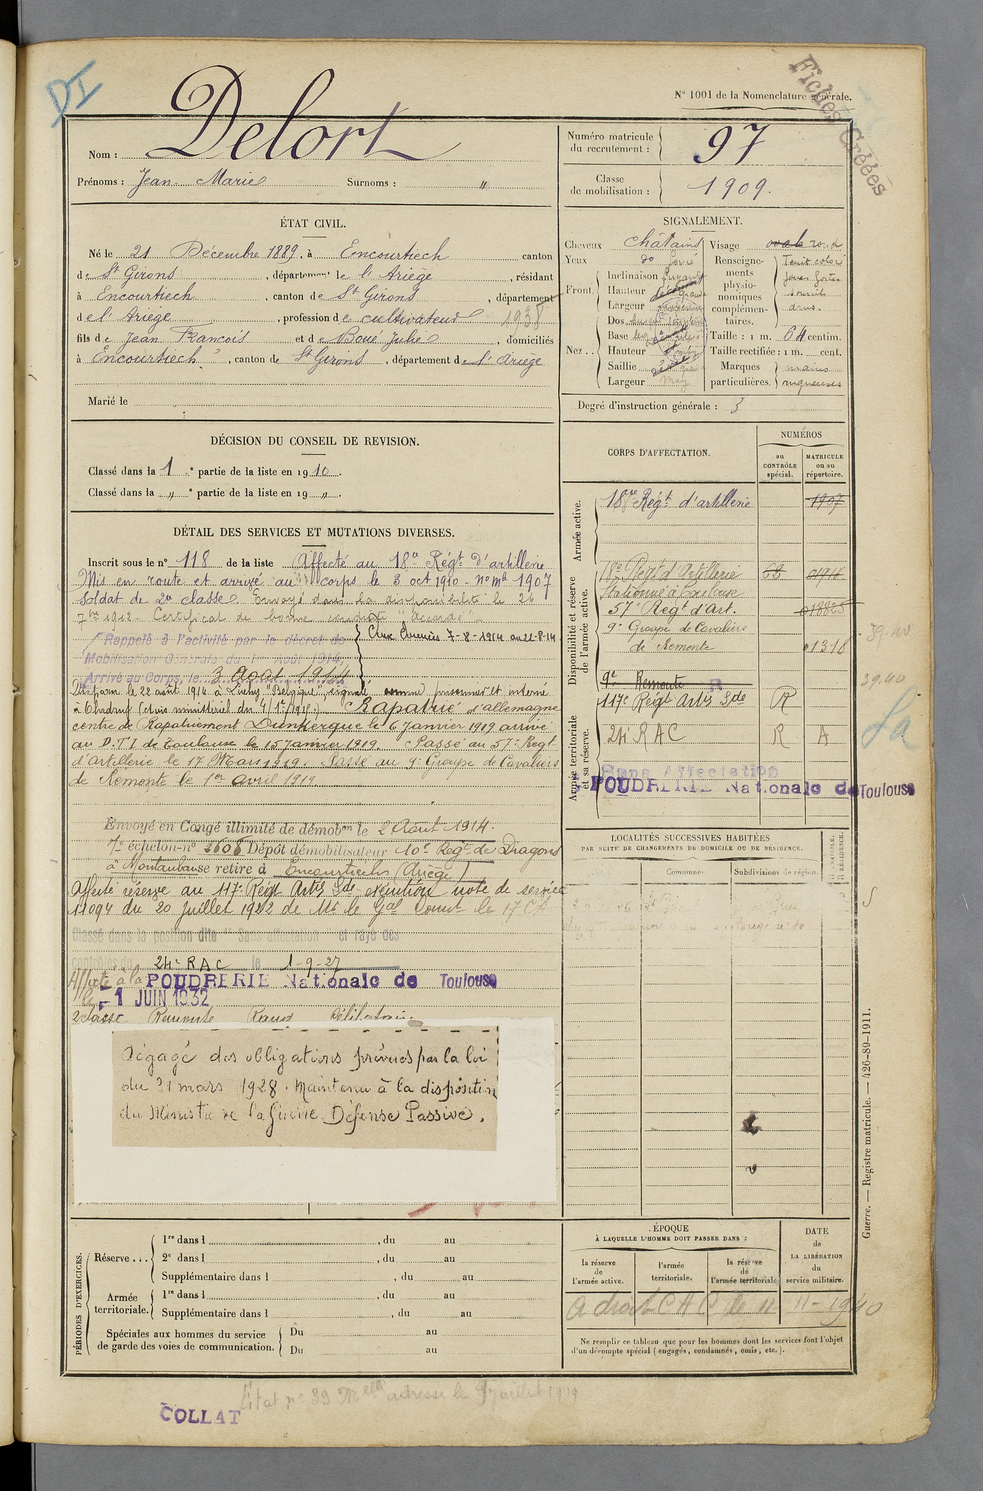 DI
Fiches Créées
N° 1001 de la Nomenclature générale.
Nom : Delort
Prénoms : Jean Marie Surnoms : "
Numéro matricule du recrutement : 97
Classe de mobilisation : 1909.
ÉTAT CIVIL.
Né le 21 Décembre 1889, à Encourtiech canton
de St Girons, département de l'Ariège, résidant
à Encourtiech, canton de St Girons, département
de l'Ariège, profession de cultivateur 1938
fils de Jean François et de Boué Julie, domiciliés
à Encourtiech, canton de St Girons, département de l'Ariège
Marié le
SIGNALEMENT.
Cheveux châtains
Yeux do
Front
Inclinaison fuyant
Hauteur
Largeur
Nez
Dos
Base
Hauteur
Saillie
Largeur moy
Visage ovale rond
Renseignements physionomiques complémentaires.
Teint coloré
Taille : 1 m. 64 centim.
Taille rectifiée : 1 m. cent.
Marques particulières. mains rugueuses
Degré d'instruction générale : 3
DÉCISION DU CONSEIL DE REVISION.
Classé dans la 1re partie de la liste en 1910.
Classé dans la " e partie de la liste en 19 ".
DÉTAIL DES SERVICES ET MUTATIONS DIVERSES.
Inscrit sous le n° 118 de la liste Affecté au 18e Régt d'artillerie
Mis en route et arrivé au corps le 3 oct 1910 - No mle 1907
Soldat de 2e classe. Envoyé dans la disponibilité le 26
7bre 1912. Certificat de bonne conduite "accordé".
Rappelé à l'activité par le décret de
Mobilisation Générale du 1er Août 1914.
Arrivé au Corps, le 3 Août 1914
Aux Armées 7-8-1914 au 22-8-14
Disparu le 22 août 1914 à "Belgique", signalé comme prisonnier et interné
à Ohrdruf (Avis ministériel du ). Rapatrié d'allemagne
centre de Rapatriement Dunkerque le 6 Janvier 1919 arrivé
au D.T.I de Toulouse le 15 Janvier 1919. Passé au 57e Régt
d'artillerie le 17 Mars 1919. Passé au 9e Groupe de Cavaliers
de Remonte le 1er avril 1919
Envoyé en Congé illimité de démobon le 2 Août 1914.
7e échelon-n° 2606 Dépôt démobilisateur 10e Régt de Dragons
à Montauban se retire à Encourtiech (Ariège)
Affecté réserve au 117e Régt Artie Lde exécution note de service
11094 du 20 juillet 1922 de Mr le Gal Comt le 17 CA
Classé dans la position dite "Sans affectation" et rayé des
contrôles du 24e RAC le 1-9-27
Affecté à la POUDRERIE Nationale de Toulouse
le 1 JUIN 1932
2e classe. Remonte
Dégagé des obligations prévues par la loi
du 31 mars 1928. Maintenu à la disposition
du Ministre de la Guerre. Défense Passive.
CORPS D'AFFECTATION.
NUMÉROS
au CONTRÔLE spécial.
MATRICULE ou au répertoire.
Armée active.
18e Régt d'artillerie 1907
Disponibilité et réserve de l'armée active.
18e Régt d'Artillerie 01918
Stationné à Toulouse
57e Régt d'Art.
9e Groupe de Cavaliers
de Remonte 1318
39-40
9e Remonte
Armée territoriale et sa réserve.
117e Régt Artie Lde R
24e RAC R A
Sans Affectation
POUDRERIE Nationale de Toulouse
39.40
LOCALITÉS SUCCESSIVES HABITÉES
PAR SUITE DE CHANGEMENTS DE DOMICILE OU DE RÉSIDENCE.
Communes
Subdivisions de région.
D. DOMICILE, R. RÉSIDENCE.
Guerre. — Registre matricule. — 426-89-1911.
PÉRIODES D'EXERCICES.
Réserve...
1re dans l , du au
2e dans l , du au
Supplémentaire dans l , du au
Armée territoriale.
1re dans l , du au
Supplémentaire dans l , du au
Spéciales aux hommes du service de garde des voies de communication.
Du au
Du au
ÉPOQUE
À LAQUELLE L'HOMME DOIT PASSER DANS :
la réserve de l'armée active.
l'armée territoriale.
la réserve de l'armée territoriale
DATE de LA LIBÉRATION du service militaire.
A droit C A C le 11 11-1940
Ne remplir ce tableau que pour les hommes dont les services font l'objet
d'un décompte spécial (engagés, condamnés, omis, etc.).
État n° 39 adressé le juillet 19
COLLAT